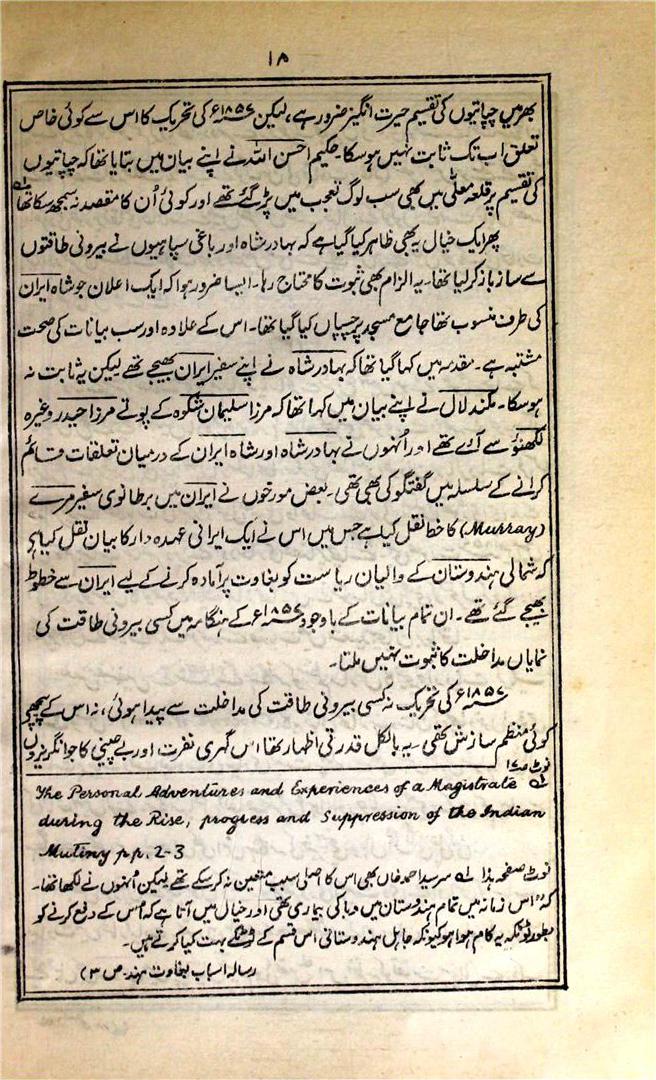 ۱۸
بھر میں چپاتیوں کی تقسیم حیرت انگیز ضرور ہے، لیکن ۱۸۵۷ء کی تحریک کا اس سے کوئی خاص
تعلق اب تک ثابت نہیں ہو سکا۔ حکیم احسن اللہ نے اپنے بیان میں بتایا تھا کہ چپاتیوں
کی تقسیم پر قلعہ معلّٰی میں بھی سب لوگ تعجب میں پڑ گئے تھے اور کوئی اُن کا مقصد نہ سمجھ سکا تھا
پھر ایک خیال یہ بھی ظاہر کیا گیا ہے کہ بہادر شاہ اور باغی سپاہیوں نے بیرونی طاقتوں
سے ساز باز کر لیا تھا۔ یہ الزام بھی ثبوت کا محتاج رہا۔ ایسا ضرور ہوا کہ ایک اعلان جو شاہ ایران
کی طرف منسوب تھا جامع مسجد پر چسپاں کیا گیا تھا۔ اس کے علاوہ اور سب بیانات کی صحت
مشتبہ ہے۔ مقدمہ میں کہا گیا تھا کہ بہادر شاہ نے اپنے سفیر ایران بھیجے تھے لیکن یہ ثابت نہ
ہو سکا۔ مکند لال نے اپنے بیان میں کہا تھا کہ مرزا سلیمان شکوہ کے پوتے مرزا حیدر وغیرہ
لکھنؤ سے آئے تھے اور اُنہوں نے بہادر شاہ اور شاہ ایران کے درمیان تعلقات قائم
کرانے کے سلسلہ میں گفتگو کی بھی تھی۔ بعض مورخوں نے ایران میں برطانوی سفیر مرے
(Murray) کا خط نقل کیا ہے جس میں اس نے ایک ایرانی عہدہ دار کا بیان نقل کیا ہے
کہ شمالی ہندوستان کے والیان ریاست کو بغاوت پر آمادہ کرنے کے لیے ایران سے خطوط
بھیجے گئے تھے۔ ان تمام بیانات کے باوجود ۱۸۵۷ء کے ہنگامہ میں کسی بیرونی طاقت کی
نمایاں مداخلت کا ثبوت نہیں ملتا۔
۱۸۵۷ء کی تحریک نہ کسی بیرونی طاقت کی مداخلت سے پیدا ہوئی، نہ اس کے پیچھے
کوئی منظم سازش تھی۔ یہ بالکل قدرتی اظہار تھا اس گہری نفرت اور بے چینی کا جو انگریزوں
نوٹ ص۱۷
The Personal Adventures and Experiences of a Magistrate
during the Rise, progress and Suppression of the Indian
Mutiny pp. 2-3
نوٹ صفحہ ہذا سرسید احمد خاں بھی اس کا اصلی سبب متعین نہ کر سکے تھے لیکن اُنہوں نے لکھا تھا۔
کہ "اس زمانہ میں تمام ہندوستان میں وبا کی بیماری تھی اور خیال میں آتا ہے کہ اُس کے دفع کرنے کو
بطور ٹوٹکہ یہ کام ہوا ہو کیونکہ جاہل ہندوستانی اس قسم کے ٹوٹکے بہت کیا کرتے ہیں۔
رسالہ اسباب بغاوت ہند۔ ص ۳)